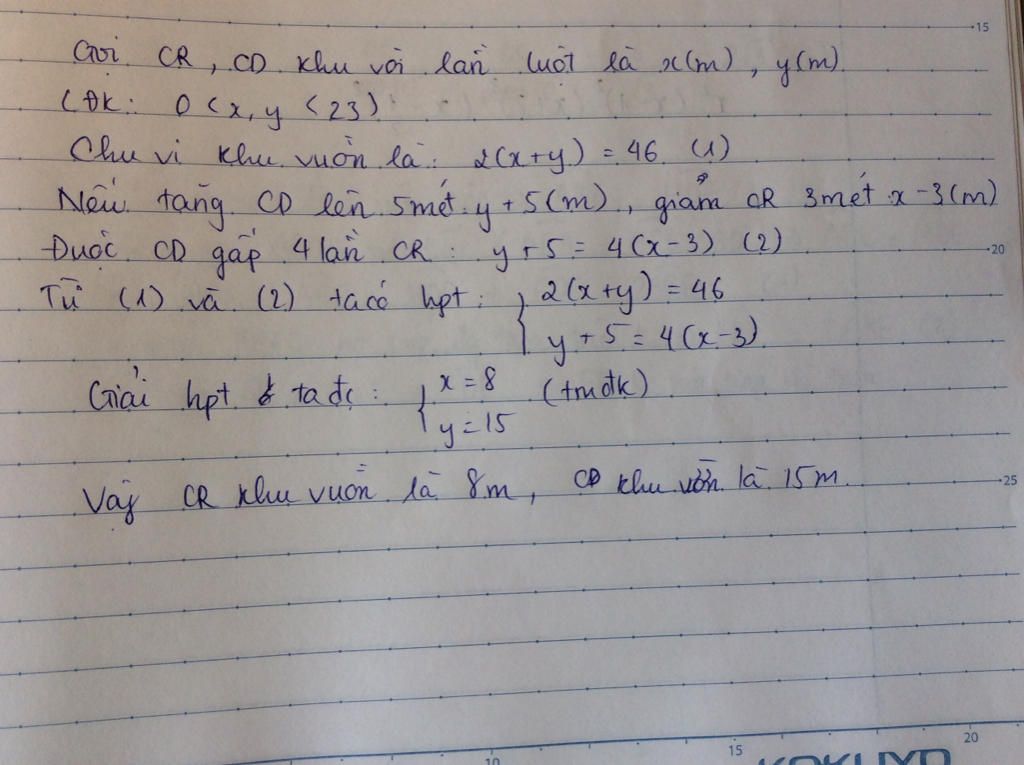 15
Gọi CR, CD khu vời lần lượt là x(m), y(m)
(ĐK: 0 < x, y < 23)
Chu vi khu vườn là: 2(x+y) = 46 (1)
Nếu tăng CD lên 5 mét y + 5 (m), giảm CR 3 mét x - 3 (m)
Được CD gấp 4 lần CR: y + 5 = 4(x-3) (2)
20
Từ (1) và (2) ta có hpt: { 2(x+y) = 46
y + 5 = 4(x-3)
Giải hpt ta đc: { x = 8 (tmđk)
y = 15
Vậy CR khu vườn là 8m, CD khu vườn là 15m.
25
10 15 20
KOKUYO